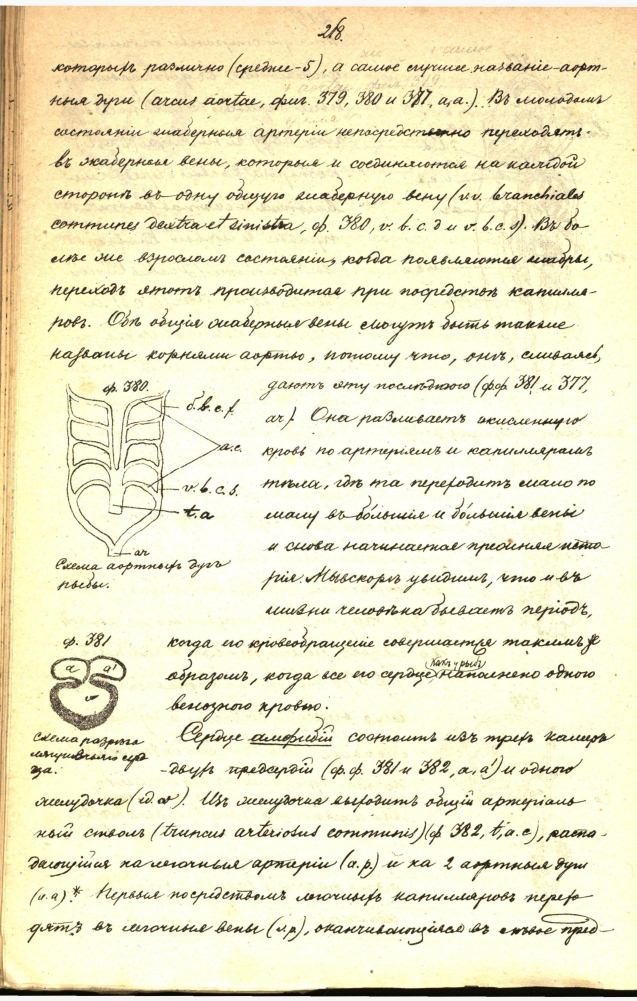 218.
которыхъ различно (среднее-5), а самое лучшее названіе-аорт-
ныя дуги (arcus aortae, фиг. 379, 380 и 387, а,а.). Въ молодомъ
состояніи жаберныя артеріи непосредственно переходятъ
въ жаберныя вены, которыя и соединяются на каждой
сторонѣ въ одну общую жаберную вену (v.v. branchiales
communes dextra et sinistra, ф. 380, v. b. c. d и v. b. c. s). Въ бо-
лѣе же взросломъ состояніи, когда появляются жабры,
переходъ этотъ производится при посредствѣ капилля-
ровъ. Обѣ общія жаберныя вены могутъ быть также
названы корнями аорты, потому что, онѣ, сливаясь,
даютъ эту послѣднюю (фф. 381 и 377,
ао). Она разливаетъ окисленную
кровь по артеріямъ и капиллярамъ
тѣла, гдѣ та переходитъ мало по
малу въ бо́льшія и бо́льшія вены
и снова начинается прежняя исто
рія. Мы вскорѣ увидимъ, что и въ
жизни человѣка бываетъ періодъ,
ф. 380.
v.b.c.d.
a.c.
v.b.c.s.
t.a
ao
Схема аортныхъ дугъ
рыбы.
когда его кровеобращеніе совершается такимъ же
образомъ, когда все его сердце какъ у рыбъ наполнено одною
венозною кровью.
ф. 381
a a'
v
Схема разрѣза
серд
ца.
Сердце амфибій состоитъ изъ трехъ камеръ
-двухъ предсердій (ф.ф. 381 и 382, а, а') и одного
желудочка (id. v). Изъ желудочка выходитъ общій артеріаль
ный стволъ (truncus arteriosus communis) (ф. 382, t, a. c), распа-
дающійся на легочныя артеріи (a. p) и на 2 аортныя дуги
(a. a) * Первыя посредствомъ легочныхъ капилляровъ перехо
дятъ въ легочныя вены (v. p), оканчивающіяся въ лѣвое пред-